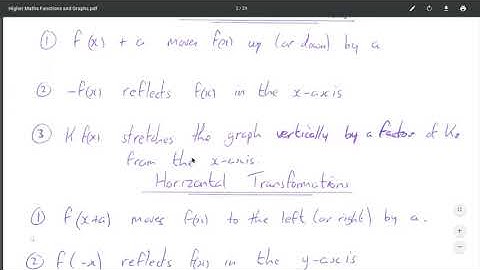 Higher Maths Functions and Graphs.pdf
2 / 29
① f(x) + a moves f(x) up (or down) by a
② -f(x) reflects f(x) in the x-axis
③ K f(x) stretches the graph vertically by a factor of K
from the x-axis
Horizontal Transformations
① f(x+a) moves f(x) to the left (or right) by a.
② f(-x) reflects f(x) in the y-axis